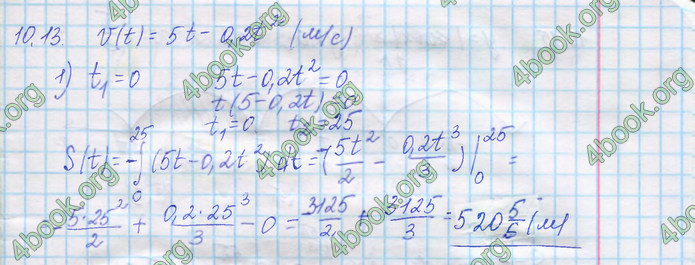 10.13. v(t) = 5t - 0,2t² (м/с)
1) t₁ = 0 5t - 0,2t² = 0
t(5 - 0,2t) = 0
t₁ = 0 t₂ = 25
S(t) = -∫₀²⁵ (5t - 0,2t²) dt = -(5t²/2 - 0,2t³/3)|₀²⁵ =
= -5·25²/2 + 0,2·25³/3 - 0 = 3125/2 + 3125/3 = 520 5/6 (м)
4book.org